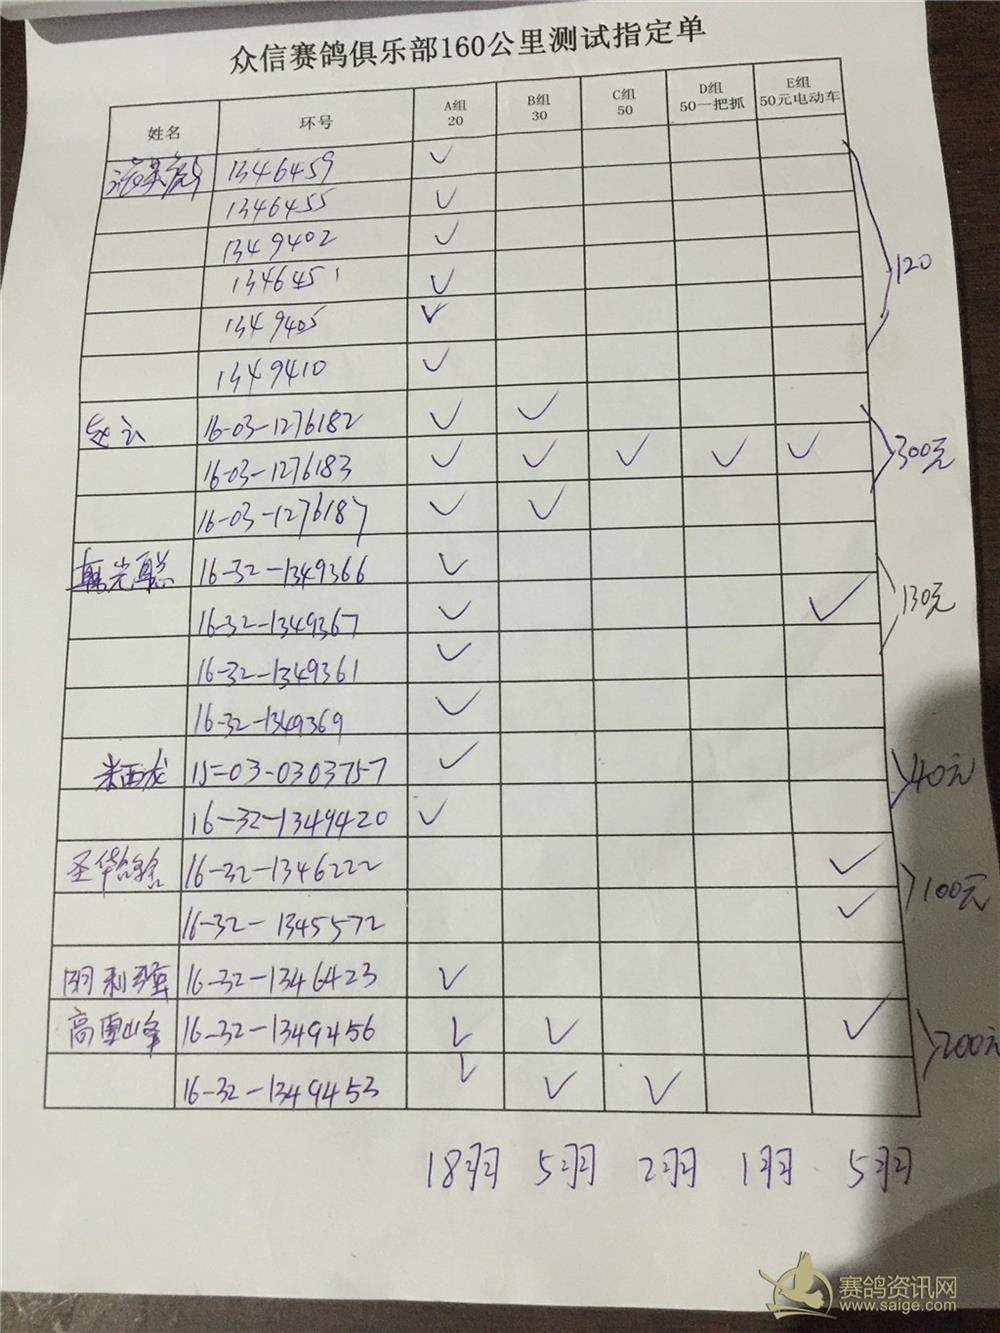 众信赛鸽俱乐部160公里测试指定单
姓名 环号 A组 20 B组 30 C组 50 D组 50一把抓 E组 50元电动车
1346459 ✓
1346455 ✓
1349402 ✓
1346451 ✓
1349405 ✓
1349410 ✓
120
16-03-1276182 ✓ ✓
16-03-1276183 ✓ ✓ ✓ ✓ ✓
16-03-1276187 ✓ ✓
300元
韩光聪 16-32-1349366 ✓
16-32-1349367 ✓ ✓
16-32-1349361 ✓
16-32-1349369 ✓
130元
米西龙 15-03-0303757 ✓
16-32-1349420 ✓
40元
圣华鸽舍 16-32-1346222 ✓
16-32-1345572 ✓
100元
阴利强 16-32-1346423 ✓
高重山峰 16-32-1349456 ✓ ✓ ✓
16-32-1349453 ✓ ✓ ✓
200元
18羽 5羽 2羽 1羽 5羽
赛鸽资讯网
www.saige.com